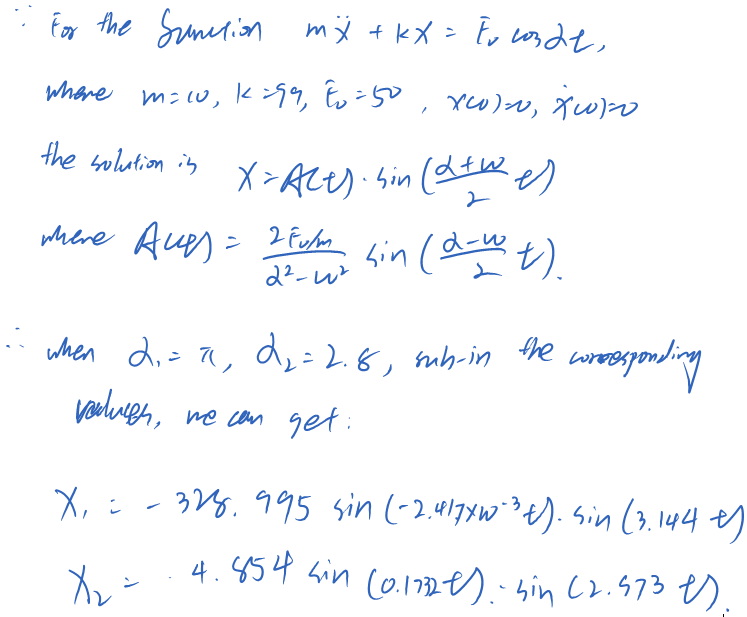 ∵ For the function mẍ + kx = F₀ cos αt,
where m=10, k=99, F₀=50, x(0)=0, ẋ(0)=0
the solution is x=A(t)·sin(\frac{α+w}{2} t)
where A(t) = \frac{2F₀/m}{α²-w²} sin(\frac{α-w}{2} t).
∴ when α₁=π, α₂=2.8, sub-in the corresponding
values, we can get:
X₁ = -328.995 sin(-2.417×10⁻³t)·sin(3.144 t)
X₂ = 4.854 sin(0.1732t)·sin(2.973 t).